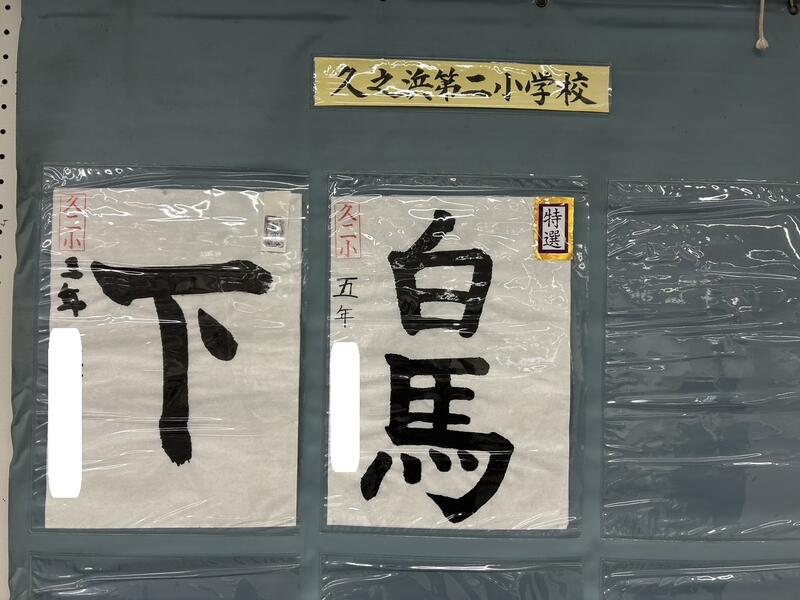 久之浜第二小学校
久二小
三年
下
久二小
五年
特選
白馬